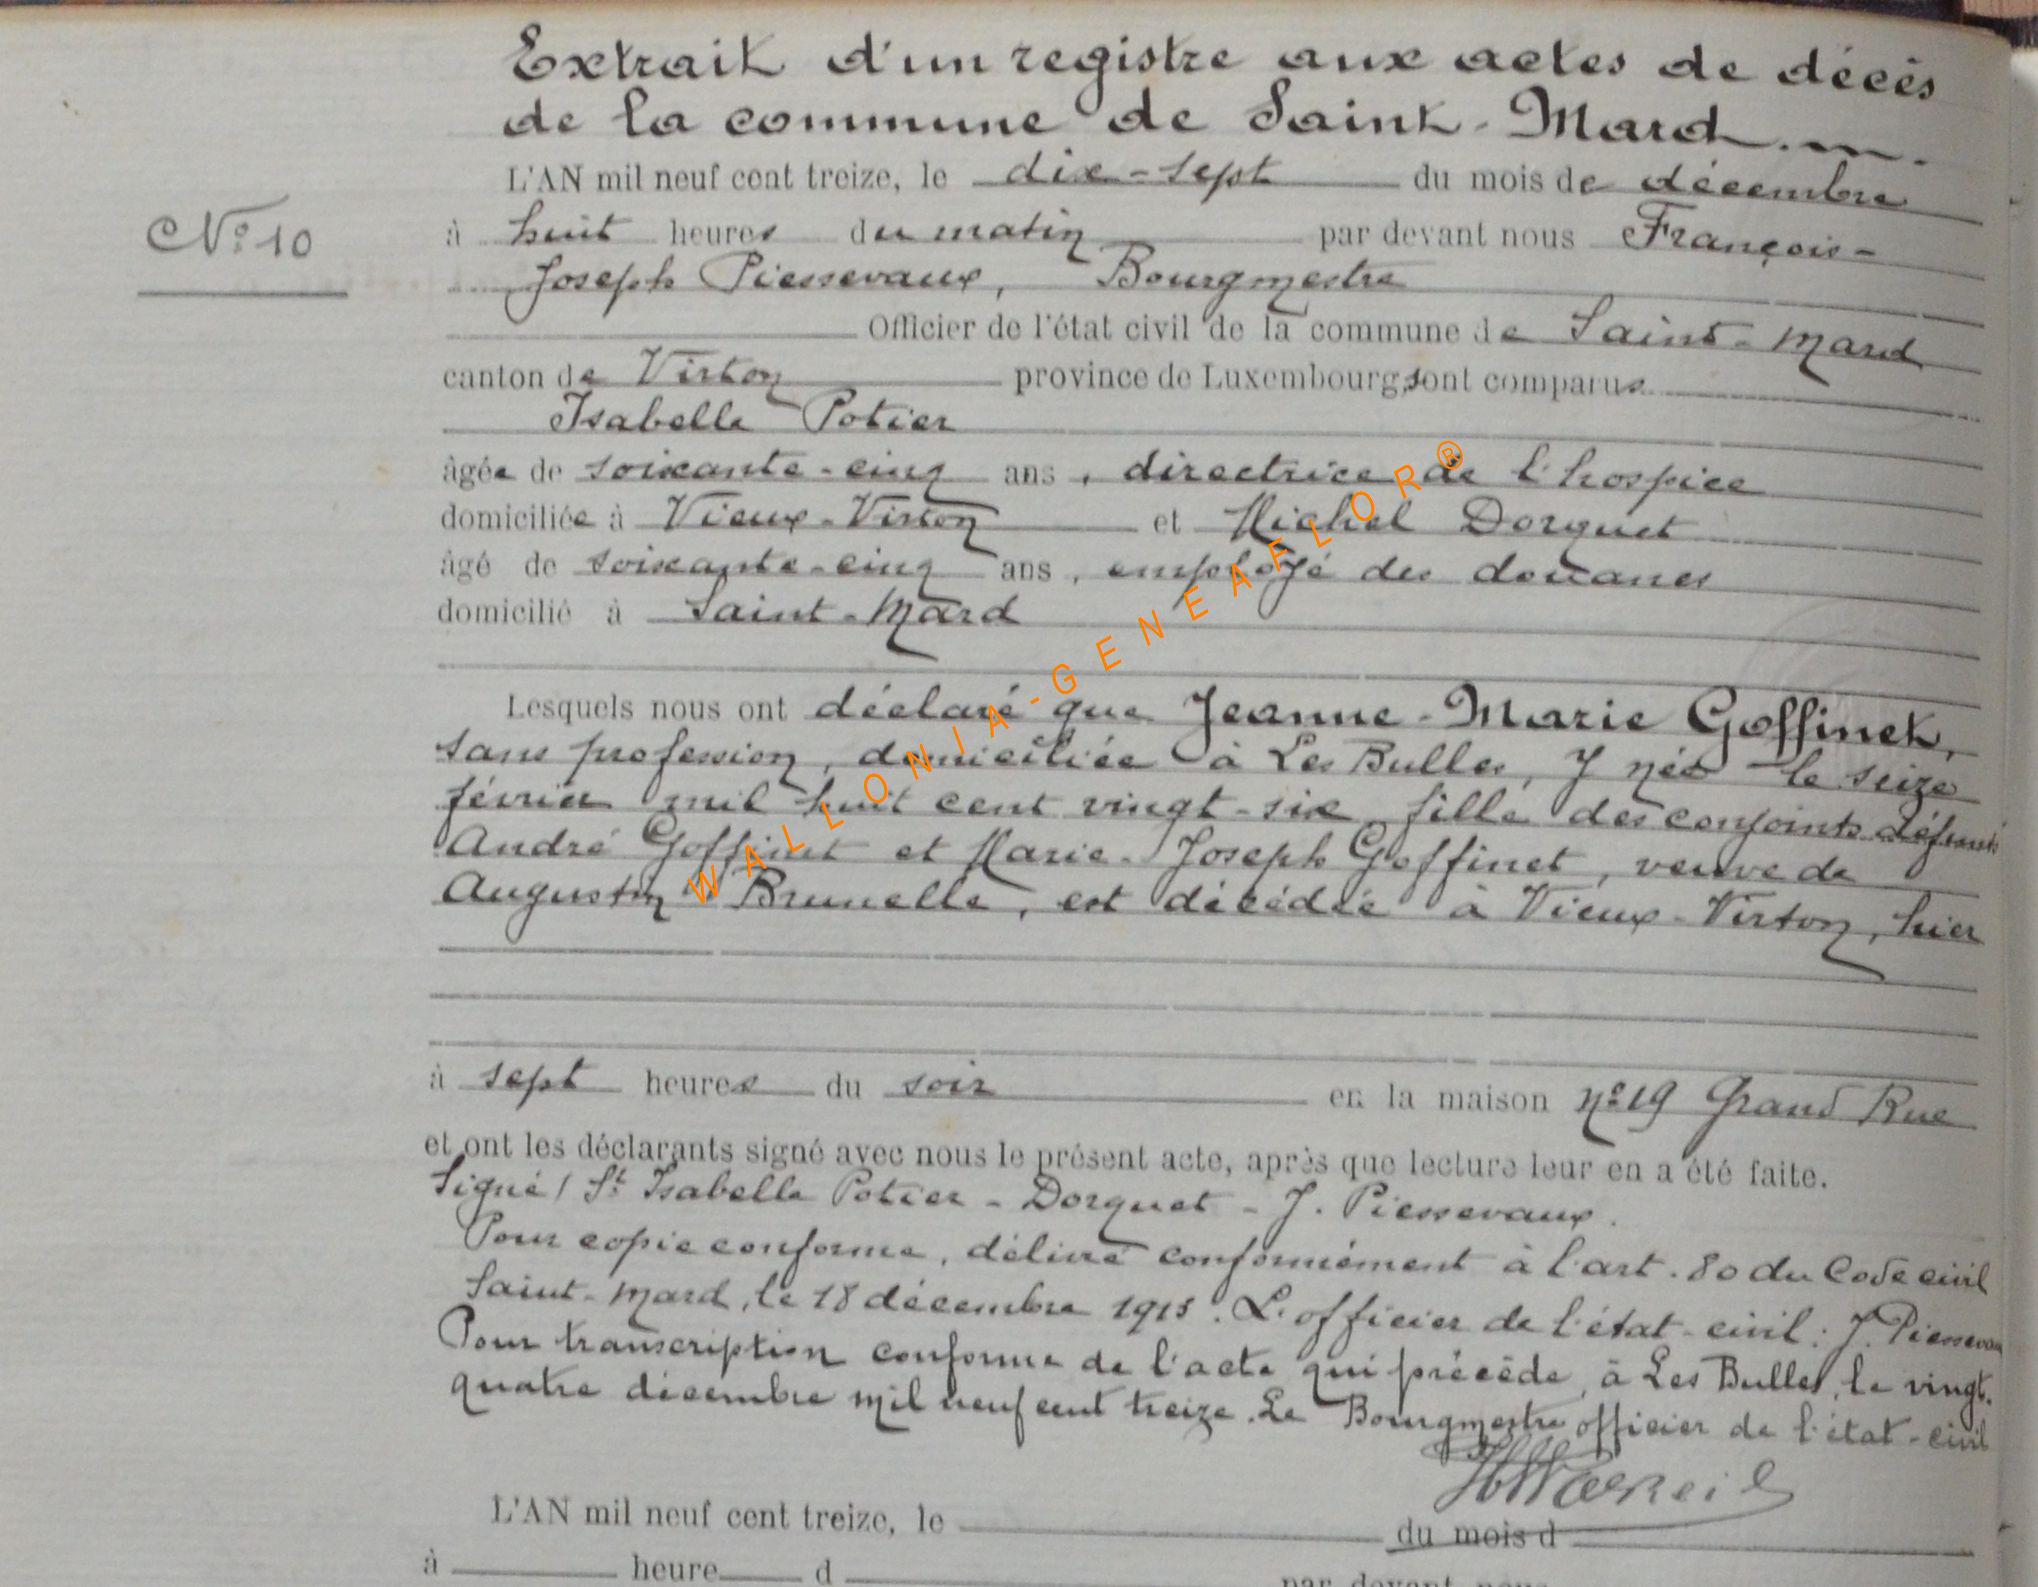 Extrait d'un registre aux actes de décès
de la commune de Saint-Mard.
L'AN mil neuf cent treize, le dix-sept du mois de décembre
N° 10
à huit heures du matin par devant nous François-
Joseph Piessevaux, Bourgmestre
Officier de l'état civil de la commune de Saint-Mard
canton de Virton province de Luxembourg, sont comparus
Isabelle Potier
âgée de soixante-cinq ans, directrice de l'hospice
domiciliée à Vieux-Virton et Michel Dorquet
âgé de soixante-cinq ans, employé des douanes
domicilié à Saint-Mard
Lesquels nous ont déclaré que Jeanne-Marie Goffinet,
sans profession, domiciliée à Les Bulles, y née le seize
février mil huit cent vingt-six, fille des conjoints défunts
André Goffinet et Marie-Joseph Goffinet, veuve de
Augustin Brunelle, est décédée à Vieux-Virton, hier
à sept heures du soir en la maison n° 19 Grand Rue
et ont les déclarants signé avec nous le présent acte, après que lecture leur en a été faite.
Signé/ St Isabelle Potier - Dorquet - J. Piessevaux.
Pour copie conforme, délivré conformément à l'art. 80 du Code civil
Saint-Mard, le 18 décembre 1913. L'officier de l'état-civil: J. Piessevaux
Pour transcription conforme de l'acte qui précède, à Les Bulles, le vingt-
quatre décembre mil neuf cent treize. Le Bourgmestre officier de l'état-civil
L'AN mil neuf cent treize, le du mois d
à heure d par devant nous
WALLONIA-GENEAFLOR®